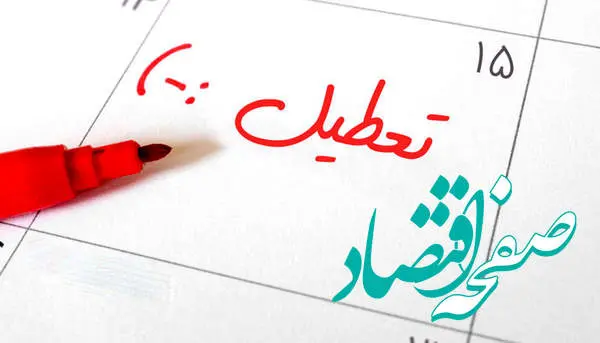 ۱۵
تعطیل
صفحه اقتصاد